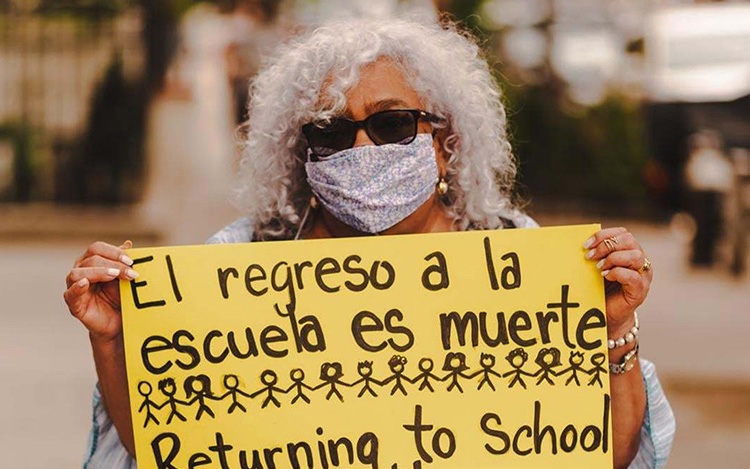 El regreso a la
escuela es muerte
Returning to School